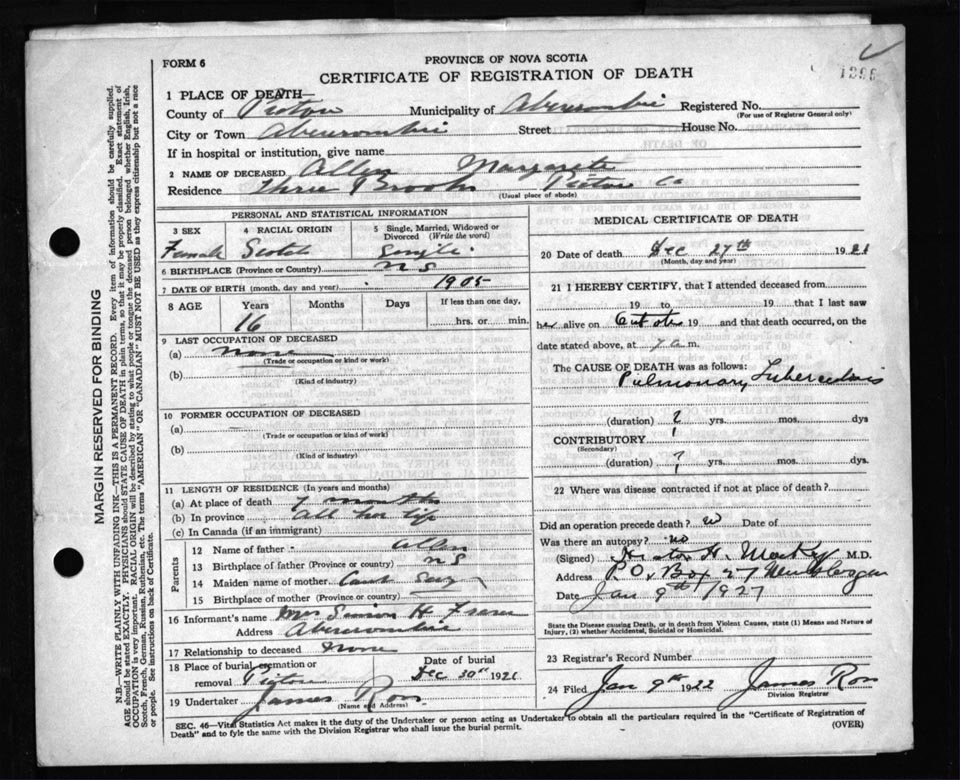 1296
FORM 6
PROVINCE OF NOVA SCOTIA
CERTIFICATE OF REGISTRATION OF DEATH
1 PLACE OF DEATH—
County of Pictou Municipality of Abercrombie Registered No.
(For use of Registrar General only)
City or Town Abercrombie Street House No.
If in hospital or institution, give name
2 NAME OF DECEASED Allen Margarete
Residence Three Brooks Pictou Co
(Usual place of abode)
PERSONAL AND STATISTICAL INFORMATION
3 SEX 4 RACIAL ORIGIN 5 Single, Married, Widowed or Divorced (Write the word)
Female Scotch Single
6 BIRTHPLACE (Province or Country) N S
7 DATE OF BIRTH (month, day and year) 1905
8 AGE Years Months Days If less than one day,
16 hrs. or min.
9 LAST OCCUPATION OF DECEASED
(a) none
(Trade or occupation or kind of work)
(b)
(Kind of industry)
10 FORMER OCCUPATION OF DECEASED
(a)
(Trade or occupation or kind of work)
(b)
(Kind of industry)
11 LENGTH OF RESIDENCE (In years and months)
(a) At place of death 7 months
(b) In province all her life
(c) In Canada (if an immigrant)
Parents
12 Name of father Allen
13 Birthplace of father (Province or country) N S
14 Maiden name of mother Cant Say
15 Birthplace of mother (Province or country)
16 Informant's name Mrs Simon H Fraser
Address Abercrombie
17 Relationship to deceased none
18 Place of burial cremation or removal Pictou Date of burial Dec 30th 1921
19 Undertaker James Ross
(Name and Address)
MEDICAL CERTIFICATE OF DEATH
20 Date of death Dec 27th 1921
(Month, day and year)
21 I HEREBY CERTIFY, that I attended deceased from
19 to 19 that I last saw
her alive on 19 and that death occurred, on
date stated above, at 7 a m.
The CAUSE OF DEATH was as follows:
Pulmonary Tuberculosis
(duration) ? yrs. mos. dys
CONTRIBUTORY
(Secondary)
(duration) ? yrs. mos. dys.
22 Where was disease contracted if not at place of death?
Did an operation precede death? no Date of
Was there an autopsy? no
(Signed) M.D.
Address P.O. Box 27 New Glasgow
Date Jan 9th 1927
State the Disease causing Death, or in death from Violent Causes, state (1) Means and Nature of
Injury, (2) whether Accidental, Suicidal or Homicidal.
23 Registrar's Record Number
24 Filed Jan 9th 1922 James Ross
Division Registrar
SEC. 46—Vital Statistics Act makes it the duty of the Undertaker or person acting as Undertaker to obtain all the particulars required in the "Certificate of Registration of
Death" and to fyle the same with the Division Registrar who shall issue the burial permit. (OVER)
MARGIN RESERVED FOR BINDING
N.B.—WRITE PLAINLY WITH UNFADING INK—THIS IS A PERMANENT RECORD. Every item of information should be carefully supplied.
AGE should be stated EXACTLY. PHYSICIANS should STATE CAUSE OF DEATH in plain terms, so that it may be properly classified. Exact statement of
OCCUPATION is very important. RACIAL ORIGIN will be described by stating to what people or tongue the deceased person belonged whether English, Irish,
Scotch, French, German, Russian, Ruthenian, etc. The terms "AMERICAN" OR "CANADIAN" MUST NOT BE USED as they express citizenship but not a race
or people. See instructions on back of Certificate.